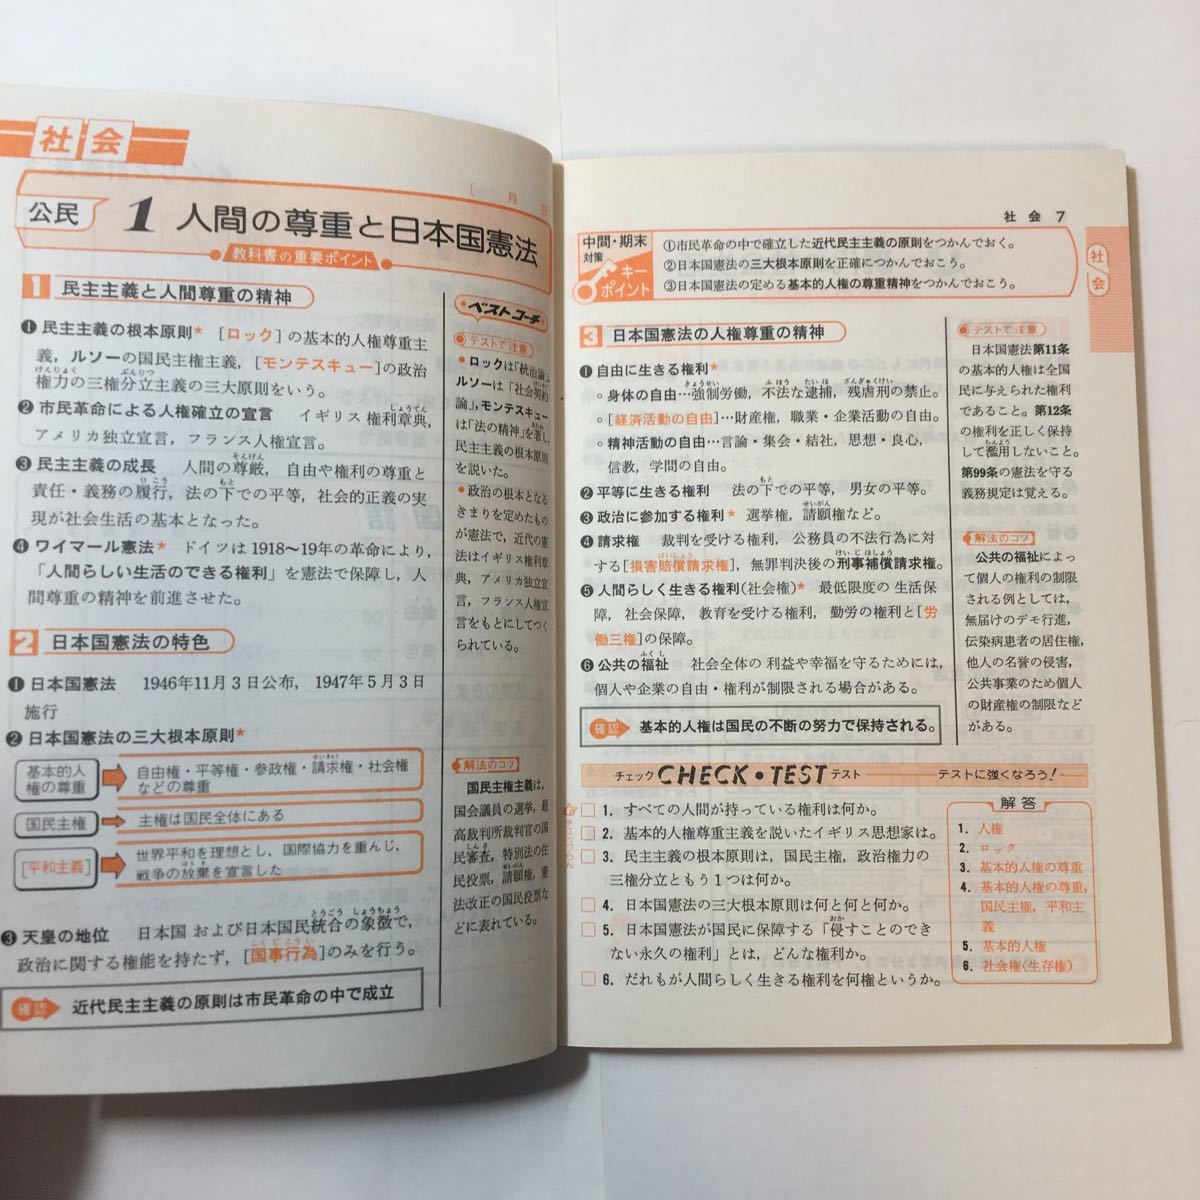 社会
[ 月 日
公民 1 人間の尊重と日本国憲法
教科書の重要ポイント
1 民主主義と人間尊重の精神
❶ 民主主義の根本原則★ [ロック]の基本的人権尊重主
義，ルソーの国民主権主義，[モンテスキュー]の政治
権力の三権分立主義の三大原則をいう。
❷ 市民革命による人権確立の宣言 イギリス権利章典，
アメリカ独立宣言，フランス人権宣言。
❸ 民主主義の成長 人間の尊厳，自由や権利の尊重と
責任・義務の履行，法の下での平等，社会的正義の実
現が社会生活の基本となった。
❹ ワイマール憲法★ ドイツは1918～19年の革命により，
「人間らしい生活のできる権利」を憲法で保障し，人
間尊重の精神を前進させた。
2 日本国憲法の特色
❶ 日本国憲法 1946年11月3日公布，1947年5月3日
施行
❷ 日本国憲法の三大根本原則★
基本的人権の尊重 自由権・平等権・参政権・請求権・社会権
などの尊重
国民主権 主権は国民全体にある
[平和主義] 世界平和を理想とし，国際協力を重んじ，
戦争の放棄を宣言した
❸ 天皇の地位 日本国および日本国民統合の象徴で，
政治に関する権能を持たず，[国事行為]のみを行う。
確認 近代民主主義の原則は市民革命の中で成立
ベストコーチ
テストで注意
• ロックは「統治論」，
ルソーは「社会契約
論」，モンテスキュー
は「法の精神」を著し，
民主主義の根本原則
を説いた。
• 政治の根本となる
きまりを定めたもの
が憲法で，近代の憲
法はイギリス権利章
典，アメリカ独立宣
言，フランス人権宣
言をもとにしてつく
られている。
解法のコツ
国民主権主義は，
国会議員の選挙，最
高裁判所裁判官の国
民審査，特別法の住
民投票，請願権，憲
法改正の国民投票な
どに表れている。
社会 7
中間・期末
対策
キー
ポイント
①市民革命の中で確立した近代民主主義の原則をつかんでおく。
②日本国憲法の三大根本原則を正確につかんでおこう。
③日本国憲法の定める基本的人権の尊重精神をつかんでおこう。
社会
3 日本国憲法の人権尊重の精神
❶ 自由に生きる権利★
○身体の自由…強制労働，不法な逮捕，残虐刑の禁止。
○[経済活動の自由]…財産権，職業・企業活動の自由。
○精神活動の自由…言論・集会・結社，思想・良心，
信教，学問の自由。
❷ 平等に生きる権利 法の下での平等，男女の平等。
❸ 政治に参加する権利★ 選挙権，請願権など。
❹ 請求権 裁判を受ける権利，公務員の不法行為に対
する[損害賠償請求権]，無罪判決後の刑事補償請求権。
❺ 人間らしく生きる権利(社会権)★ 最低限度の生活保
障，社会保障，教育を受ける権利，勤労の権利と[労
働三権]の保障。
❻ 公共の福祉 社会全体の利益や幸福を守るためには，
個人や企業の自由・権利が制限される場合がある。
確認 基本的人権は国民の不断の努力で保持される。
テストで注意
日本国憲法第11条
の基本的人権は全国
民に与えられた権利
であること。第12条
の権利を正しく保持
して濫用しないこと。
第99条の憲法を守る
義務規定は覚える。
解法のコツ
公共の福祉によっ
て個人の権利の制限
される例としては，
無届けのデモ行進，
伝染病患者の居住権，
他人の名誉の侵害，
公共事業のため個人
の財産権の制限など
がある。
チェック CHECK・TEST テスト テストに強くなろう！
チェックらん
□ 1. すべての人間が持っている権利は何か。
□ 2. 基本的人権尊重主義を説いたイギリス思想家は。
□ 3. 民主主義の根本原則は，国民主権，政治権力の
三権分立ともう1つは何か。
□ 4. 日本国憲法の三大根本原則は何と何と何か。
□ 5. 日本国憲法が国民に保障する「侵すことのでき
ない永久の権利」とは，どんな権利か。
□ 6. だれもが人間らしく生きる権利を何権というか。
解答
1. 人権
2. ロック
3. 基本的人権の尊重
4. 基本的人権の尊重，
国民主権，平和主
義
5. 基本的人権
6. 社会権(生存権)